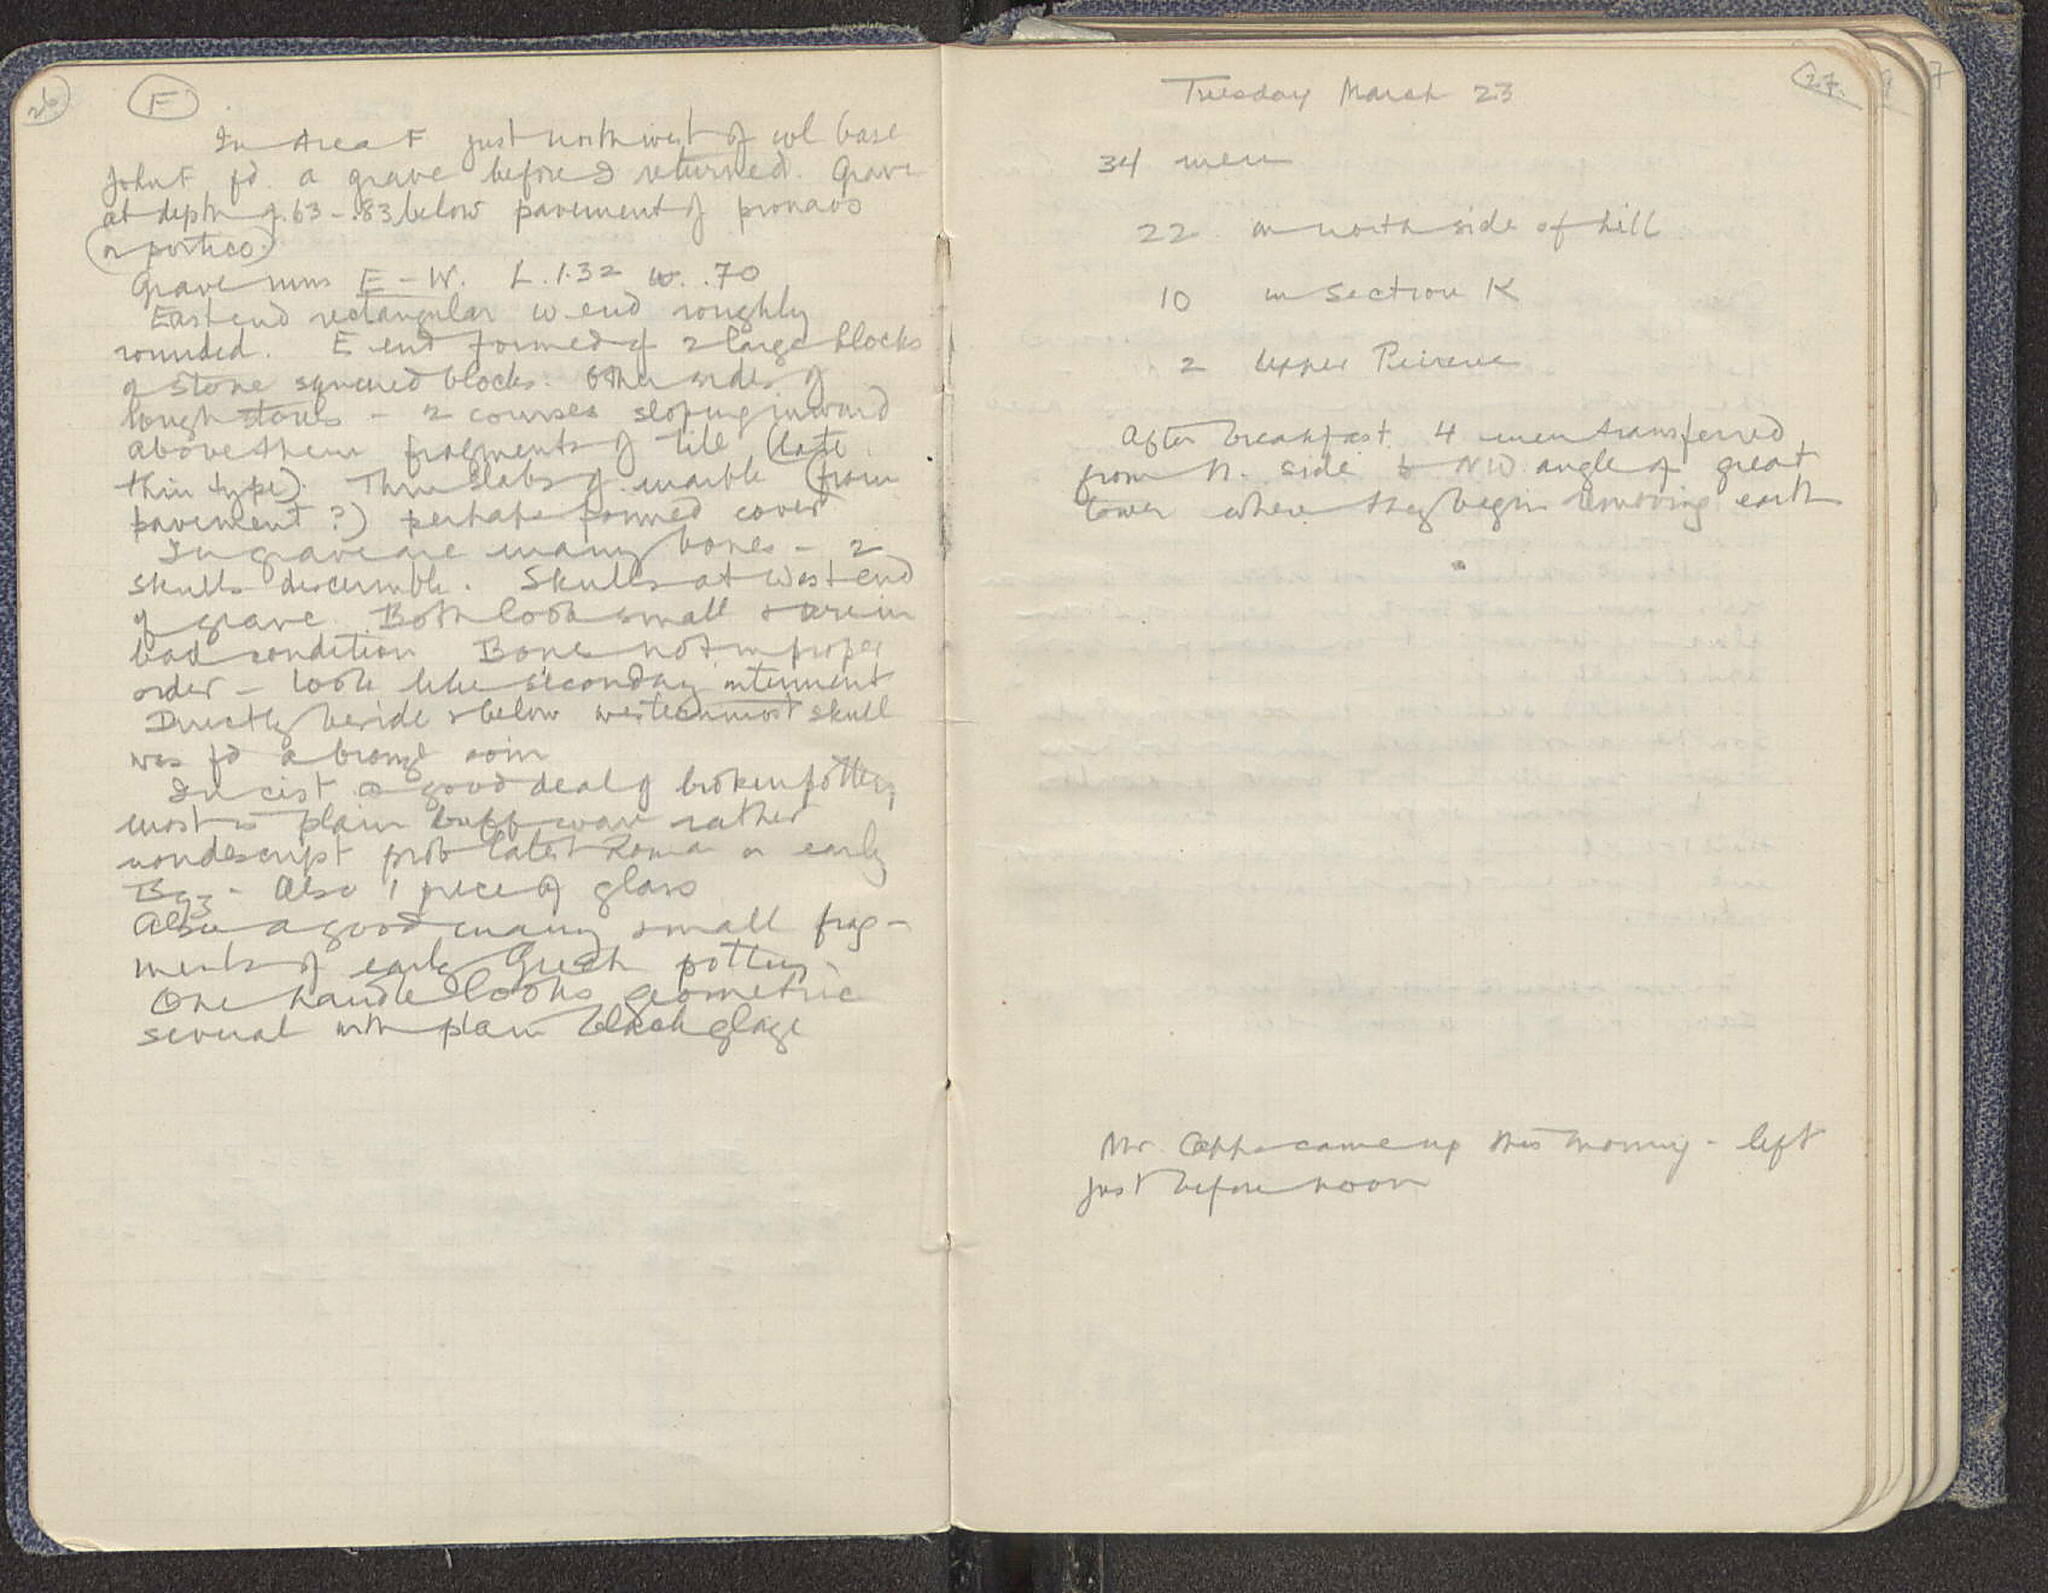 26
F
In Area F just northwest of col base
John F fd. a grave before I returned. Grave
at depth of .63 - .83 below pavement of pronaos
(or portico)
Grave runs E - W. L. 1.32 w. .70
East end rectangular w end roughly
rounded. E end formed of 2 large blocks
of stone squared blocks. Other sides of
rough stones - 2 courses sloping inward
above them fragments of tile (late
thin type). Three slabs of marble (from
pavement?) perhaps formed cover
In grave are many bones - 2
skulls discernible. Skulls at West end
of grave. Both look small & are in
bad condition Bones not in proper
order - look like secondary interment
Directly beside & below westernmost skull
was fd a bronze coin
In cist a good deal of broken pottery
most is plain buff ware rather
nondescript prob latest Roman or early
Byz - Also 1 piece of glass
Also a good many small frag-
ments of early Greek pottery.
One handle looks geometric
several with plain black glaze
27.
Tuesday March 23
34 men
22 on north side of hill
10 in Section K
2 Upper Peirene
After breakfast 4 men transferred
from N. side to NW angle of great
tower where they begin removing earth
Mr. came up this morning - left
just before noon